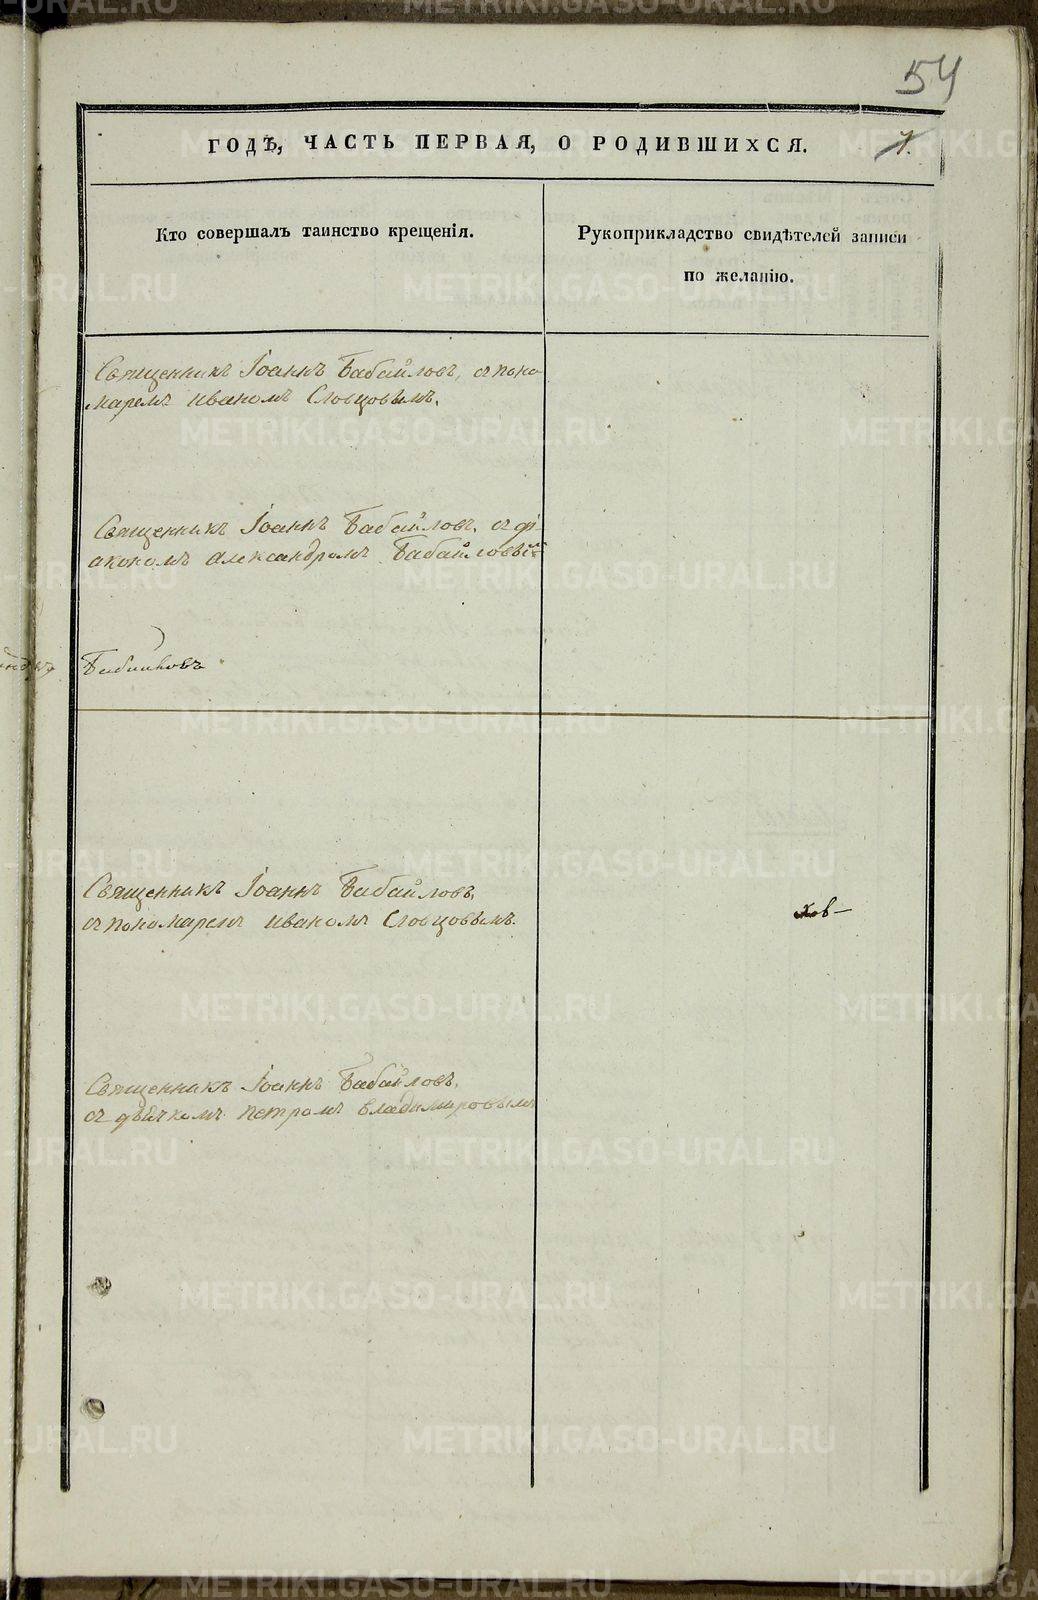 54
ГОДѢ, ЧАСТЬ ПЕРВАЯ, О РОДИВШИХСЯ. 1.
Кто совершалъ таинство крещенія.
Рукоприкладство свидѣтелей записи
по желанію.
Священникъ Іоаннъ Бабайловъ, съ поно-
маремъ Иваномъ Словцовымъ.
Священникъ Іоаннъ Бабайловъ, съ ді-
акономъ Александромъ Бабайловы
Священникъ Іоаннъ Бабайловъ,
съ пономаремъ Иваномъ Словцовымъ.
хов-
Священникъ Іоаннъ Бабайловъ,
съ дьячкомъ Петромъ Владимировымъ
METRIKI.GASO-URAL.RU